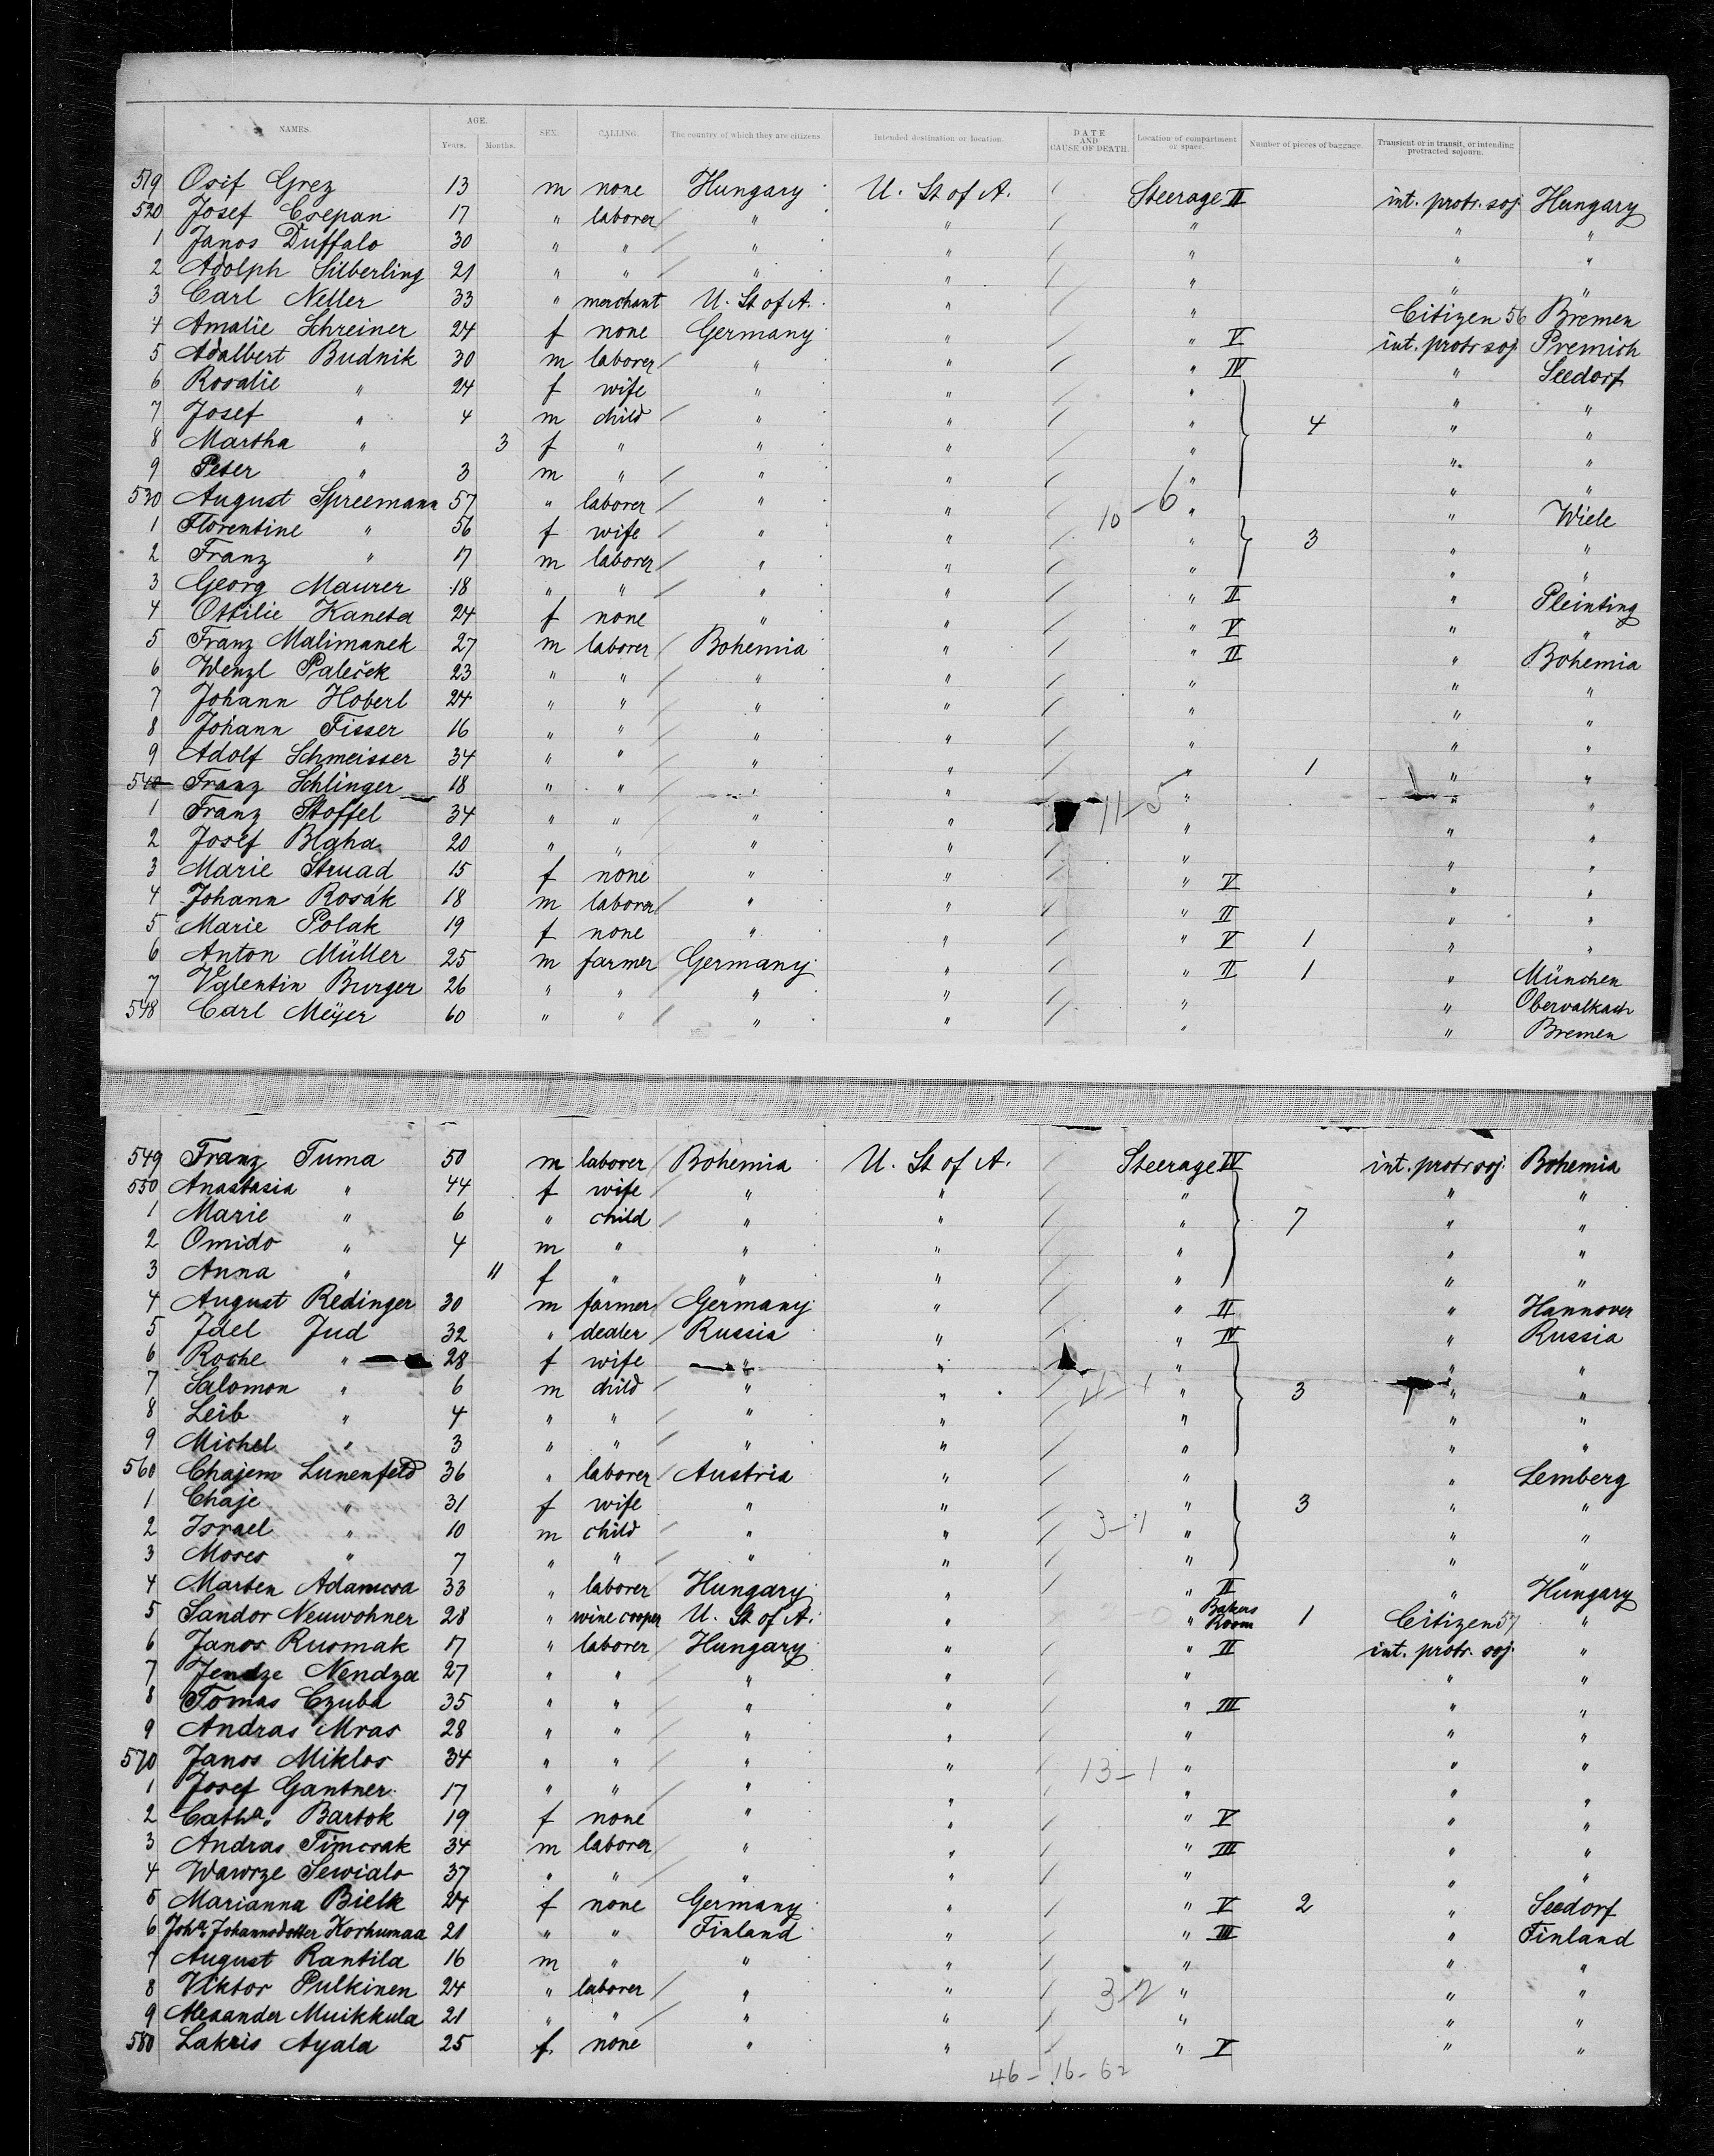 NAMES. AGE. Years. Months. SEX. CALLING. The country of which they are citizens. Intended destination or location. DATE AND CAUSE OF DEATH. Location of compartment or space. Number of pieces of baggage. Transient or in transit, or intending protracted sojourn.
519 Osif Grez 13 m none Hungary U. St of A. / Steerage II int. protr. soj. Hungary
520 Josef Csepan 17 " laborer / " " / " " "
1 Janos Duffalo 30 " " / " " / " " "
2 Adolph Silberling 21 " " / " " / " " "
3 Carl Neller 33 " merchant U. St of A. " / " Citizen 56 Bremen
4 Amalie Schreiner 24 f none Germany " / " V int. protr soj. Premich
5 Adalbert Budnik 30 m laborer / " " / " IV " Seedorf
6 Rosalie " 24 f wife " " / " " "
7 Josef " 4 m child / " " / " 4 " "
8 Martha " 3 f " " " / " " "
9 Peter " 3 m " / " " / " " "
530 August Spreemann 57 " laborer / " " / 10-6 " " Wiele
1 Florentine " 56 f wife / " " / " 3 " "
2 Franz " 17 m laborer / " " / " " "
3 Georg Maurer 18 " " / " " / " II " Pleinting
4 Ottilie Kaneta 24 f none " " / " V " "
5 Franz Malimanek 27 m laborer / Bohemia " / " II " Bohemia
6 Wenzl Paleček 23 " " / " " / " " "
7 Johann Hoberl 24 " " / " " / " " "
8 Johann Fisser 16 " " / " " / " " "
9 Adolf Schmeisser 34 " " / " " / " 1 " "
540 Franz Schlinger 18 " " / " " 11-5 " " "
1 Franz Stoffel 34 " " / " " / " " "
2 Josef Blaha 20 " " / " " / " " "
3 Marie Struad 15 f none " " / " V " "
4 Johann Rosák 18 m laborer / " " / " II " "
5 Marie Polak 19 f none " " / " V 1 " "
6 Anton Müller 25 m farmer Germany " / " II 1 " München
7 Valentin Burger 26 " " / " " / " " Obervolkach
548 Carl Meÿer 60 " " / " " / " " Bremen
549 Franz Tuma 50 m laborer / Bohemia U. St of A. / Steerage IV int. protr soj. Bohemia
550 Anastasia " 44 f wife / " " / " " "
1 Marie " 6 " child / " " / " 7 " "
2 Omido " 4 m " " " / " " "
3 Anna " 11 f " " " / " " "
4 August Redinger 30 m farmer / Germany " / " II " Hannover
5 Idel Jud 32 " dealer / Russia " / " IV " Russia
6 Roche " 28 f wife " " " " "
7 Salomon " 6 m child / " " / 4-1 " 3 " "
8 Leib " 4 " " / " " / " " "
9 Michel " 3 " " / " " / " " "
560 Chajem Lunenfeld 36 " laborer Austria " / " " Lemberg
1 Chaje " 31 f wife " " / " 3 " "
2 Israel " 10 m child / " " / 3-1 " " "
3 Moses " 7 " " / " " / " " "
4 Marten Adamcsa 33 " laborer Hungary " / " II " Hungary
5 Sandor Neuwohner 28 " wine cooper U. St of A. " " Bakers Room 1 Citizen 57 "
6 Janos Rusmak 17 " laborer / Hungary " / " II int. protr. soj. "
7 Jendze Nendza 27 " " / " " / " " "
8 Tomas Czuba 35 " " / " " / " III " "
9 Andras Mras 28 " " / " " / " " "
570 Janos Miklos 34 " " / " " / 13-1 " " "
1 Josef Gantner 17 " " / " " / " " "
2 Catha. Bartok 19 f none " " / " V " "
3 Andras Timcsak 34 m laborer / " " / " III " "
4 Wawrze Sewialo 37 " " / " " / " " "
5 Marianna Bielk 24 f none Germany " / " V 2 " Seedorf
6 Joha. Johannsdotter Korhumaa 21 " " Finland " / " III " Finland
7 August Rantila 16 m " " " / " " "
8 Viktor Pulkinen 24 " laborer / " " / 3-2 " " "
9 Alexander Muikkula 21 " " / " " / " " "
580 Lakris Ayala 25 f. none " " / " V " "
46-16-62